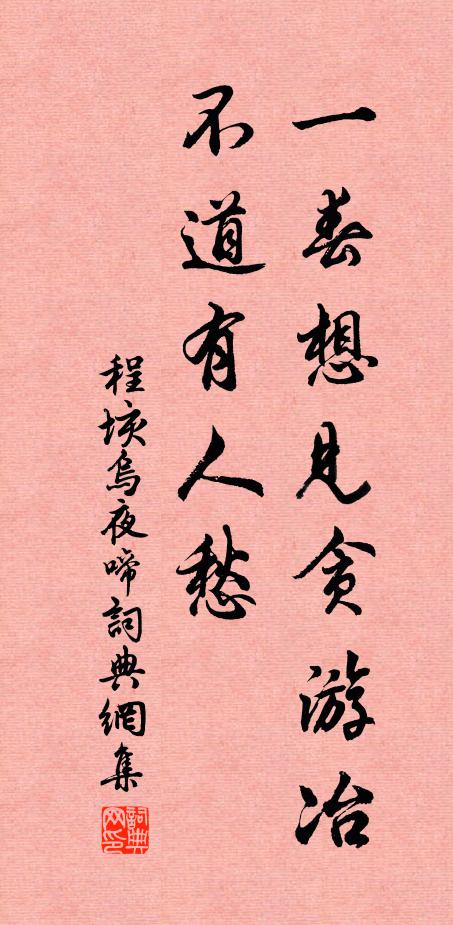 一春想見贪游冶
不道有人愁
程垓烏夜啼詞典網集
詞典
网印